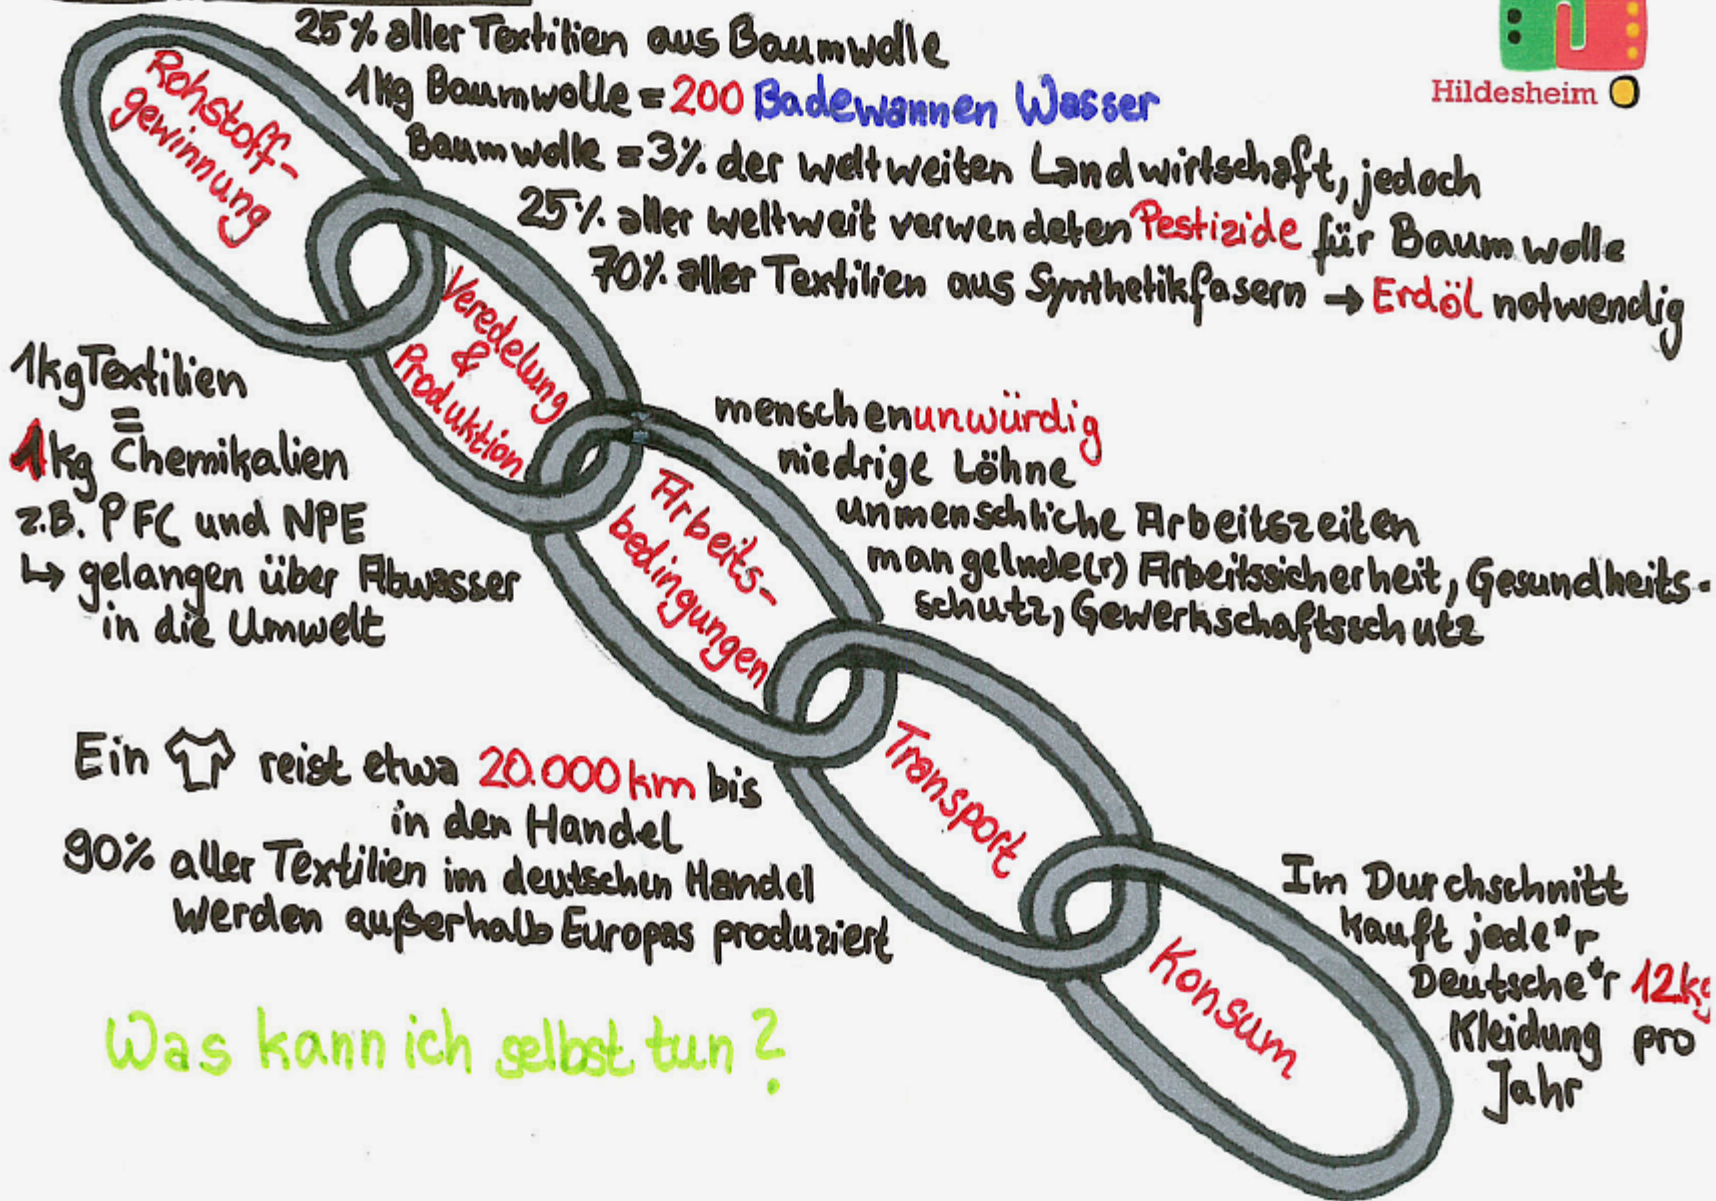 25% aller Textilien aus Baumwolle
1kg Baumwolle = 200 Badewannen Wasser
Baumwolle = 3% der weltweiten Landwirtschaft, jedoch
25% aller weltweit verwendeten Pestizide für Baumwolle
70% aller Textilien aus Synthetikfasern → Erdöl notwendig
Hildesheim
Rohstoff-
gewinnung
Veredelung
&
Produktion
1kg Textilien
=
1kg Chemikalien
z.B. PFC und NPE
↳ gelangen über Abwasser
in die Umwelt
menschenunwürdig
niedrige Löhne
unmenschliche Arbeitszeiten
mangelnde(r) Arbeitssicherheit, Gesundheits-
schutz, Gewerkschaftsschutz
Arbeits-
bedingungen
Ein reist etwa 20.000 km bis
in den Handel
90% aller Textilien im deutschen Handel
werden außerhalb Europas produziert
Transport
Im Durchschnitt
kauft jede*r
Deutsche*r 12kg
Kleidung pro
Jahr
Konsum
Was kann ich selbst tun?